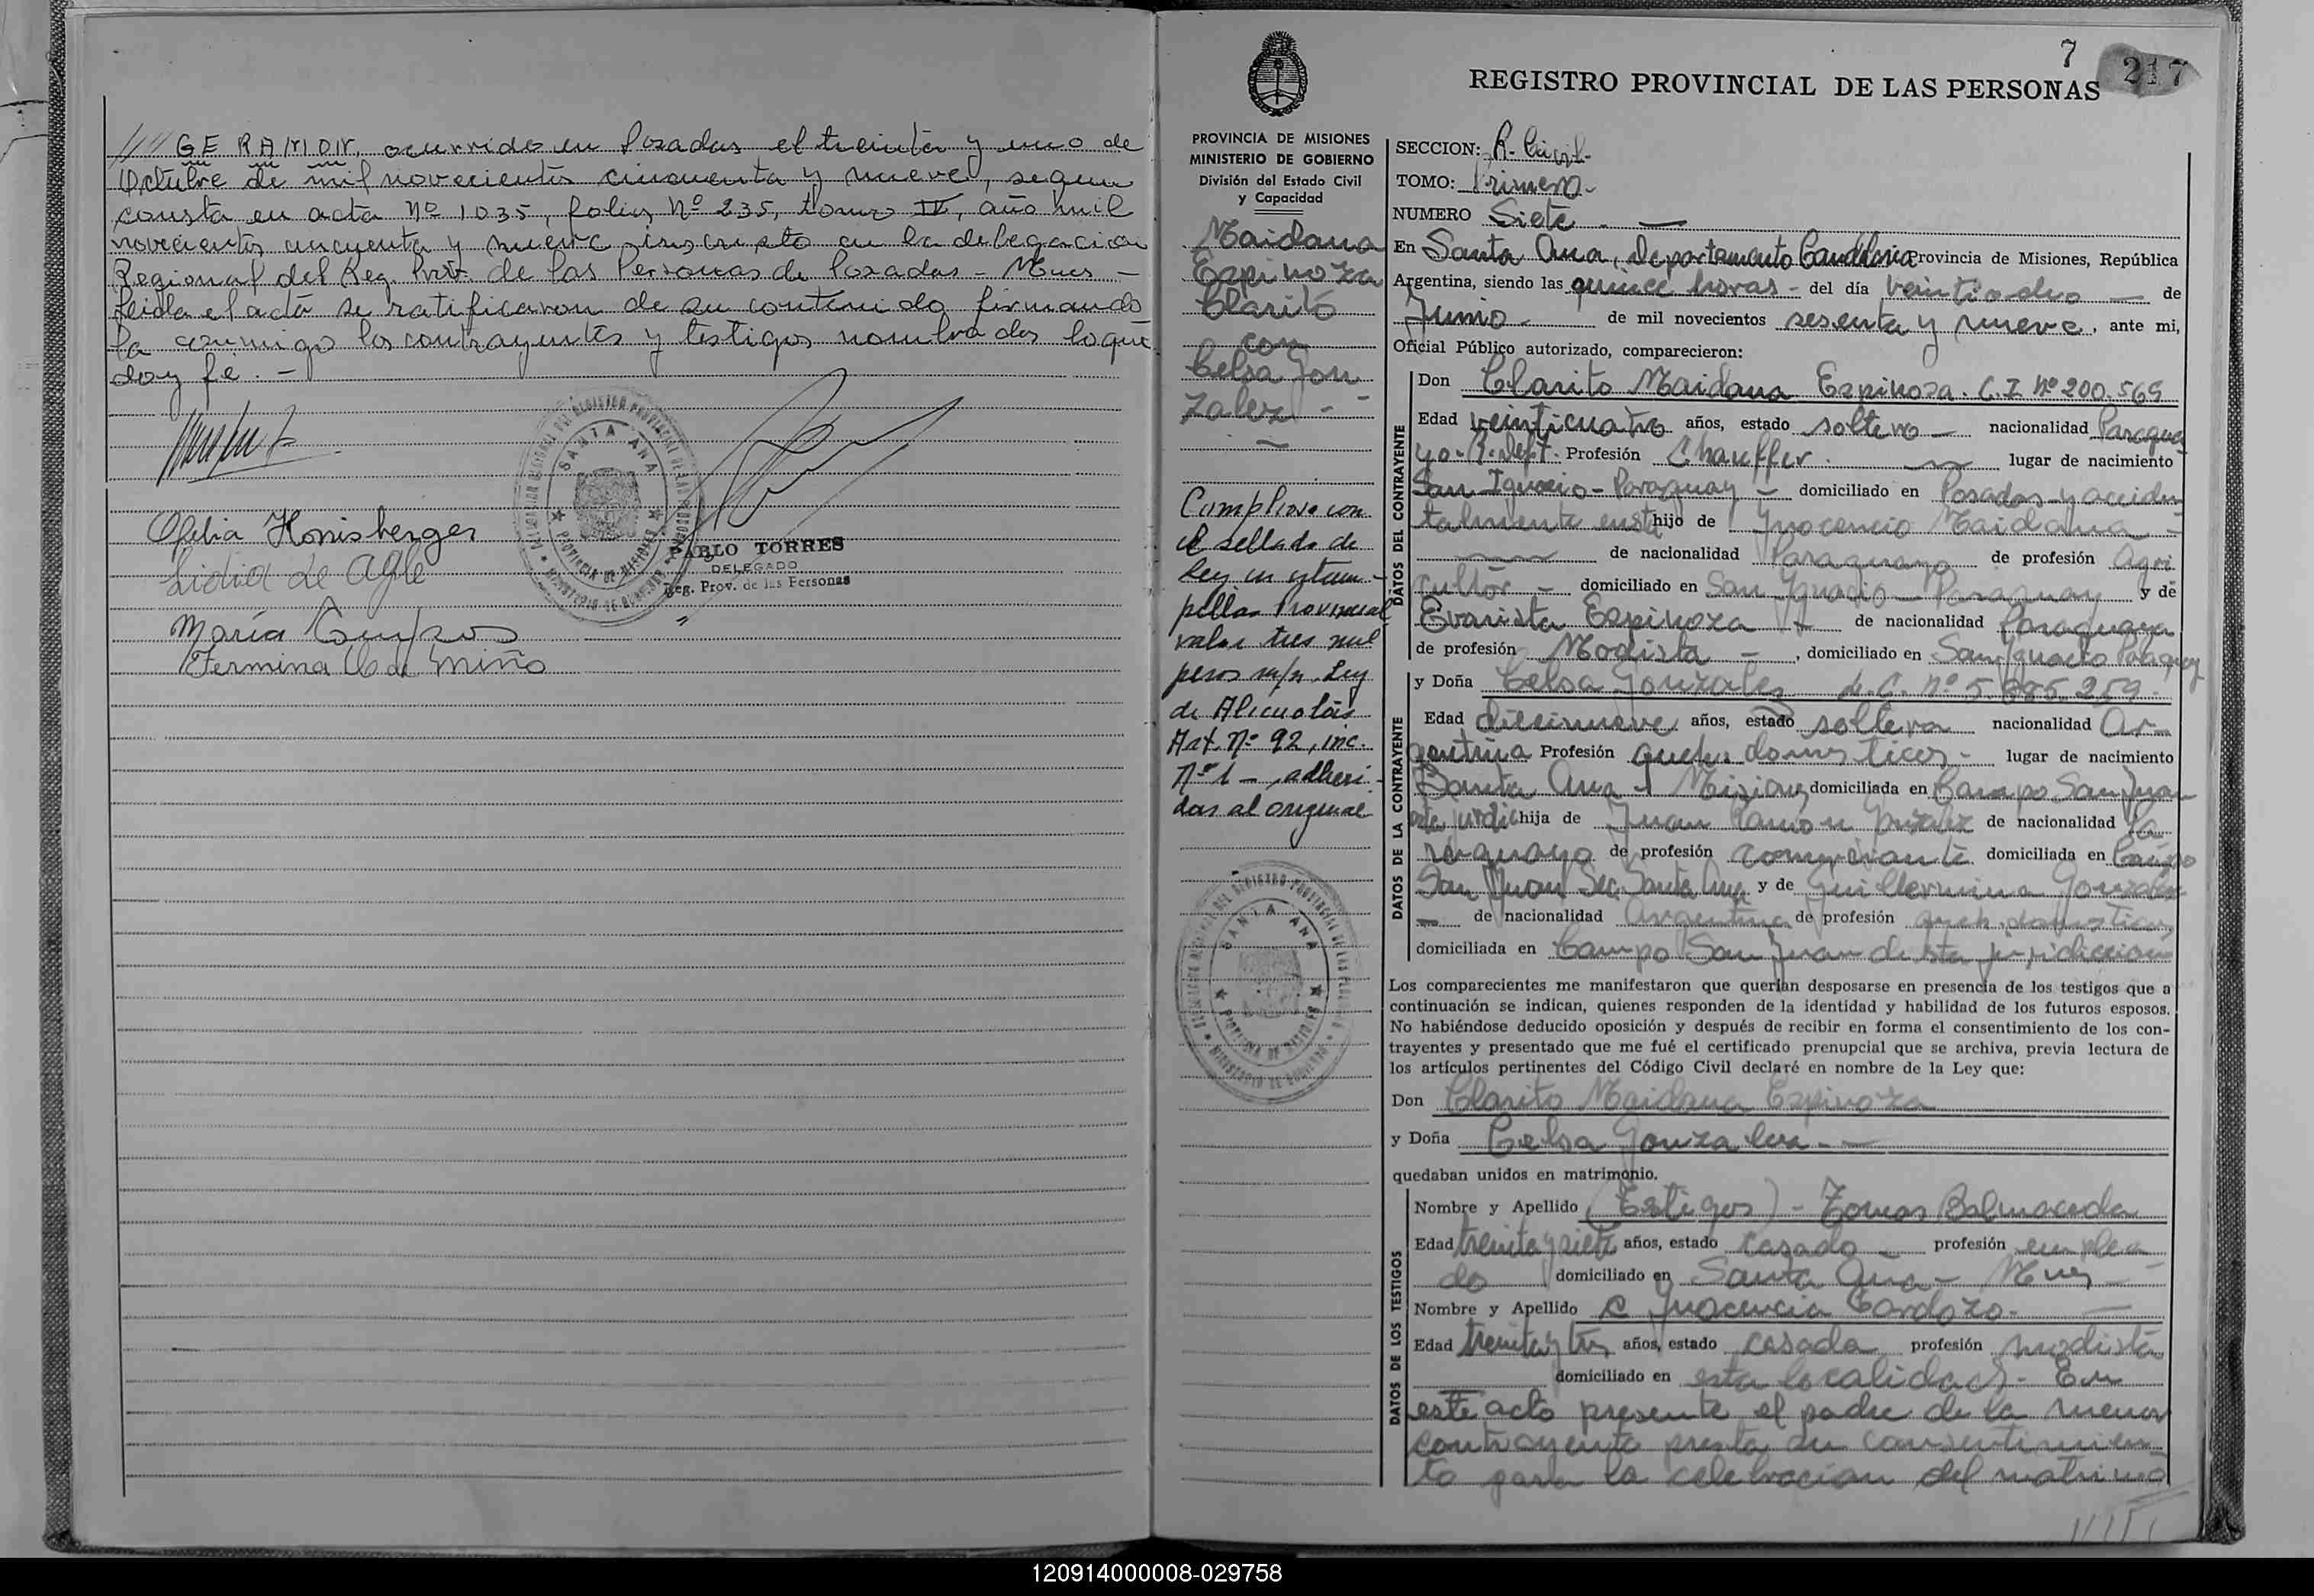 //// GERAMON, ocurrido en Posadas el treinta y uno de
Octubre de mil novecientos cincuenta y nueve, segun
consta en acta Nº 1035, folio Nº 235, tomo IV, año mil
novecientos cincuenta y nueve inscripto en la delegación
Regional del Reg. Prov. de las Personas de Posadas - Mnes -
Leida el acta se ratificaron de su contenido firmando
la conmigo los contrayentes y testigos nombrados lo que
doy fe. -
SANTA ANA
PROVINCIA DE MISIONES
Ofelia Honisberger
PABLO TORRES
DELEGADO
Reg. Prov. de las Personas
Lidia de Agle
María Campos
Fermina C. de Miño
7
217
REGISTRO PROVINCIAL DE LAS PERSONAS
PROVINCIA DE MISIONES
MINISTERIO DE GOBIERNO
División del Estado Civil
y Capacidad
Maidana
Espinoza
Clarito
con
Celsa Gon
zalez - -
Cumpliose con
el sellado de
ley en estam-
pillas Provincial
valor tres mil
pesos m/n. Ley
de Alicuotas
Art. Nº 92, inc.
Nº 1 -, adheri-
das al original
SANTA ANA
PROVINCIA DE MISIONES
SECCION: R. Civil.
TOMO: Primero.
NUMERO Siete
En Santa Ana, Departamento Candelaria Provincia de Misiones, República
Argentina, siendo las quince horas - del día veintiocho - de
Junio - de mil novecientos sesenta y nueve, ante mi,
Oficial Público autorizado, comparecieron:
DATOS DEL CONTRAYENTE
Don Clarito Maidana Espinoza. C.I. Nº 200.569
Edad veinticuatro años, estado soltero - nacionalidad Paragua
yo. Profesión Chauffer. lugar de nacimiento
San Ignacio - Paraguay - domiciliado en Posadas y acciden
talmente en esta hijo de Ynocencio Maidana -
de nacionalidad Paraguayo de profesión Agri
cultor - domiciliado en San Ygnacio - Paraguay y de
Evarista Espinoza - de nacionalidad Paraguaya
de profesión Modista - , domiciliado en San Ygnacio Paraguay
DATOS DE LA CONTRAYENTE
y Doña Celsa Gonzalez L.C. Nº 5.885.259.
Edad diecinueve años, estado soltera nacionalidad Ar
gentina Profesión queh. domesticos - lugar de nacimiento
Santa Ana - Misiones domiciliada en Campo San Juan
esta jurdic hija de Juan Ramon de nacionalidad Pa
raguayo de profesión comerciante domiciliada en Campo
San Juan Sec. Santa Ana y de Guillermina Gonzalez
- de nacionalidad Argentina de profesión queh. domesticos
domiciliada en Campo San Juan de esta jurisdiccion
Los comparecientes me manifestaron que querían desposarse en presencia de los testigos que a
continuación se indican, quienes responden de la identidad y habilidad de los futuros esposos.
No habiéndose deducido oposición y después de recibir en forma el consentimiento de los con-
trayentes y presentado que me fué el certificado prenupcial que se archiva, previa lectura de
los artículos pertinentes del Código Civil declaré en nombre de la Ley que:
Don Clarito Maidana Espinoza
y Doña Celsa Gonzalez - -
quedaban unidos en matrimonio.
DATOS DE LOS TESTIGOS
Nombre y Apellido (Testigos) - Tomas Balmaceda
Edad treinta y siete años, estado casado - profesión emplea
do domiciliado en Santa Ana - Mnes -
Nombre y Apellido e Ynocencia Cardozo. -
Edad treinta y tres años, estado casada profesión modista
domiciliado en esta localidad. - En
este acto presente el padre de la menor
contrayente presta su consentimien
to para la celebracion del matrimo
////
120914000008-029758